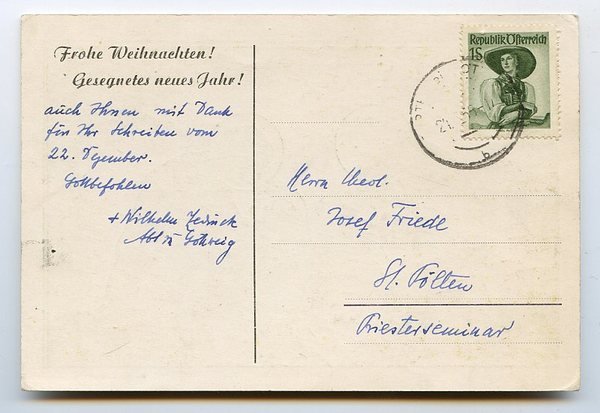 Frohe Weihnachten!
Gesegnetes neues Jahr!
auch Ihnen mit Dank
für Ihr Schreiben vom
22. Dezember.
Gottbefohlen
+ Wilhelm Zedinek
Abt zu Göttweig
Republik Österreich
1S
Herrn theol.
Josef Friedl
St. Pölten
Priesterseminar